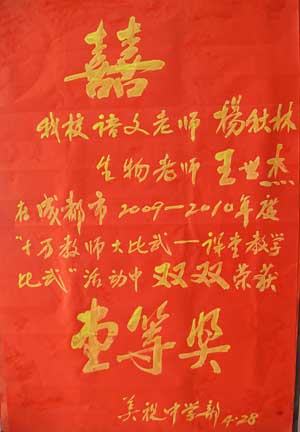 囍
我校语文老师杨秋林
生物老师王世杰
在成都市2009—2010年度
“十万教师大比武—课堂教学
比武”活动中双双荣获
壹等奖
美视中学部4.28